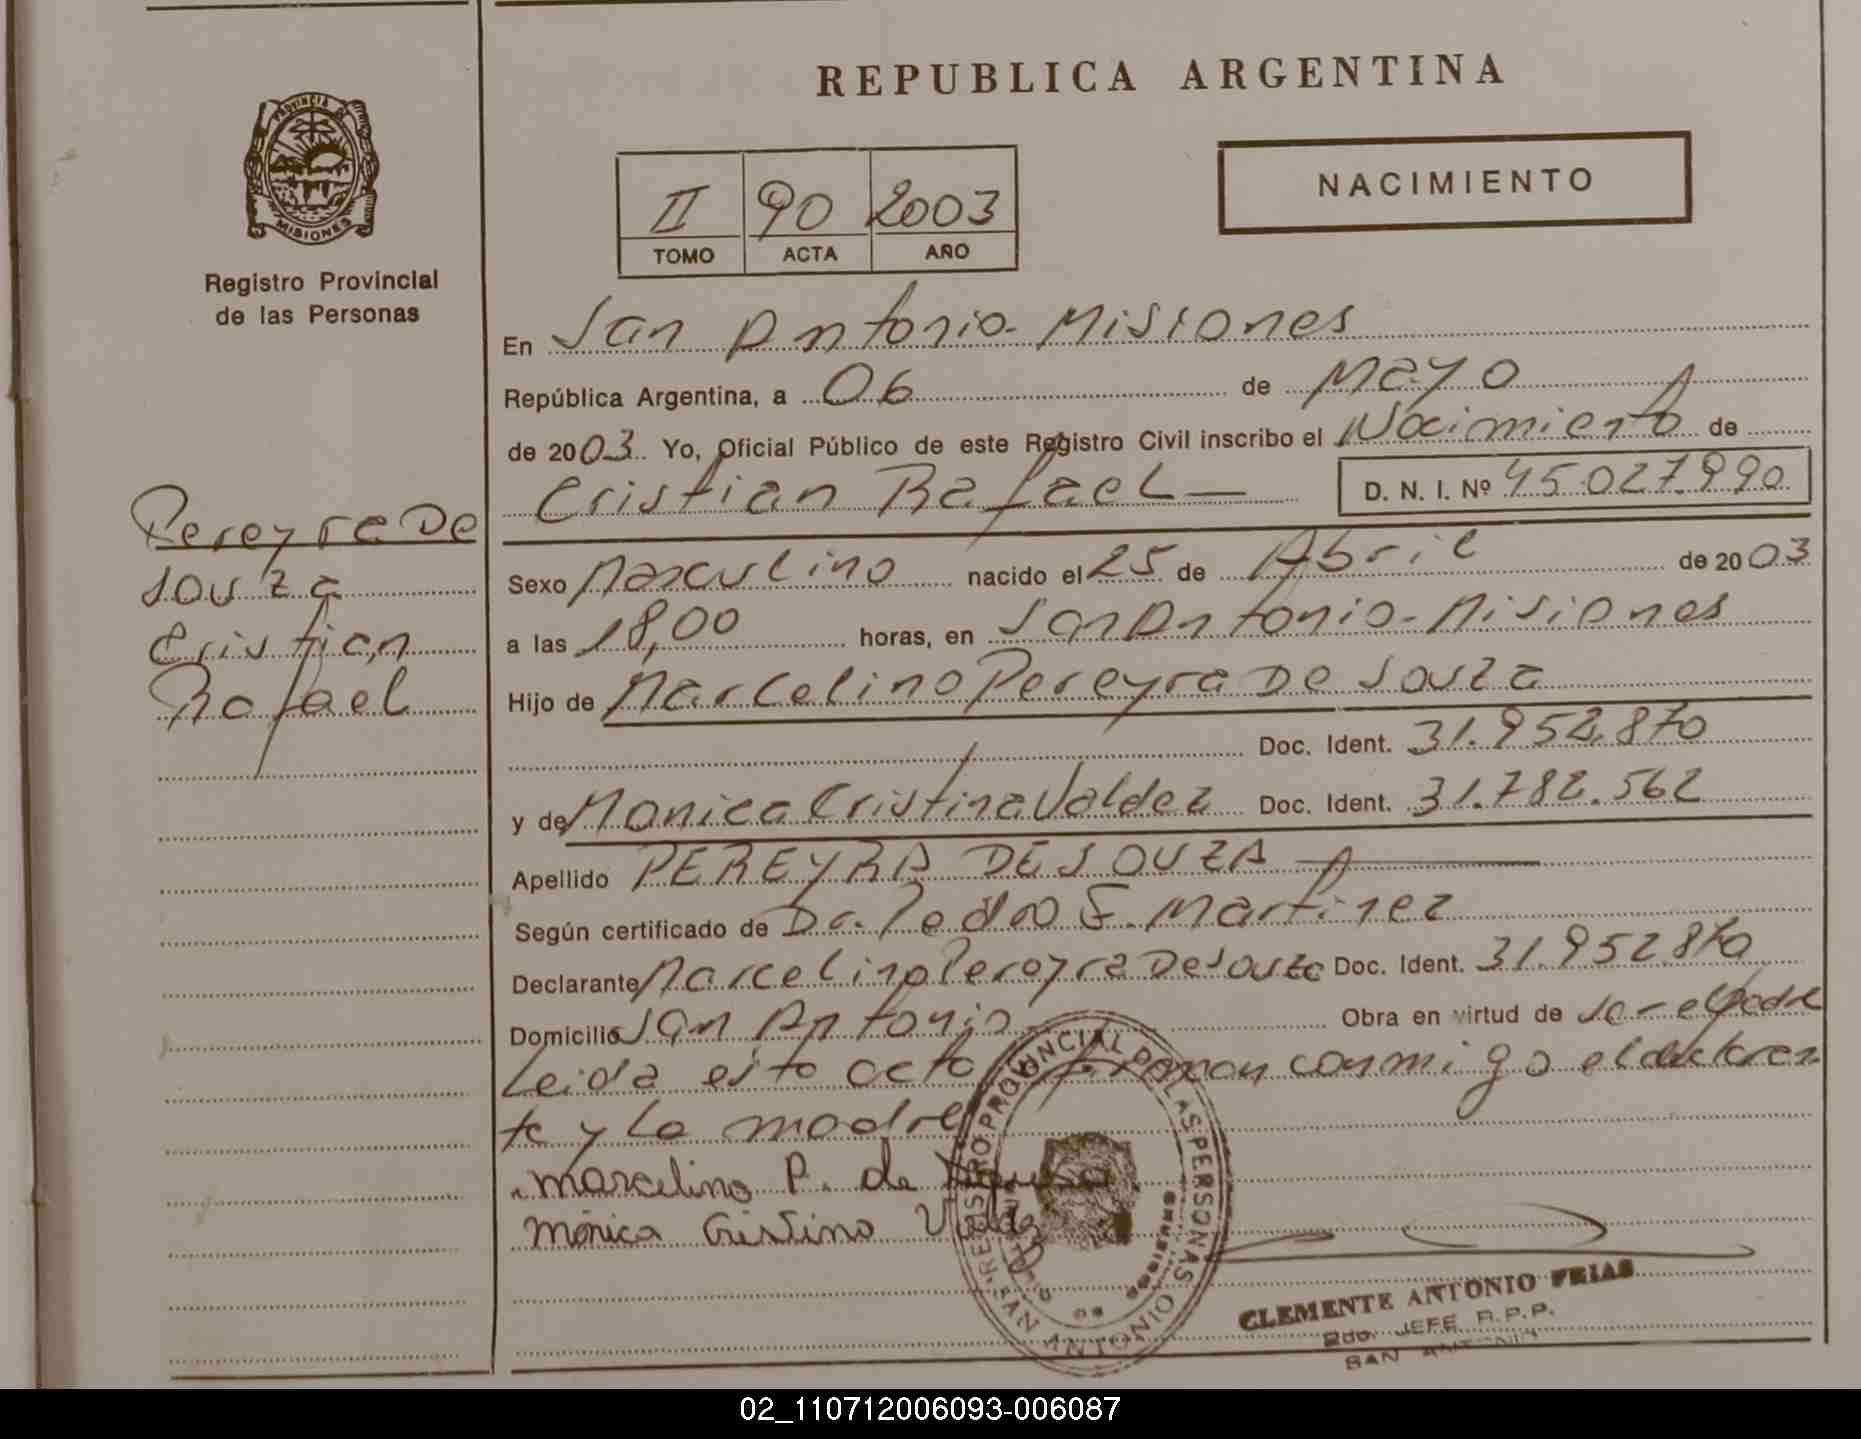 REPUBLICA ARGENTINA
PROVINCIA DE
MISIONES
Registro Provincial
de las Personas
II 90 2003
TOMO ACTA AÑO
NACIMIENTO
En San Antonio - Misiones
República Argentina, a 06 de Mayo
de 2003. Yo, Oficial Público de este Registro Civil inscribo el Nacimiento de
Cristian Rafael — D. N. I. Nº 45.027.990
Pereyra De
Souza
Cristian
Rafael
Sexo Masculino nacido el 25 de Abril de 2003
a las 18,00 horas, en San Antonio - Misiones
Hijo de Marcelino Pereyra De Souza
Doc. Ident. 31.952.870
y de Monica Cristina Valdez Doc. Ident. 31.782.562
Apellido PEREYRA DE SOUZA
Según certificado de Dr. Pedro E. Martinez
Declarante Marcelino Pereyra De Souza Doc. Ident. 31.952.870
Domicilio San Antonio Obra en virtud de Ser el padre
Leida esta acta firman conmigo el declaran
te y la madre
marcelino P. de
Mónica Cristina
REGISTRO PROVINCIAL DE LAS PERSONAS
SAN ANTONIO
CLEMENTE ANTONIO FRIAS
2do. JEFE R.P.P.
SAN ANTONIO
02_110712006093-006087